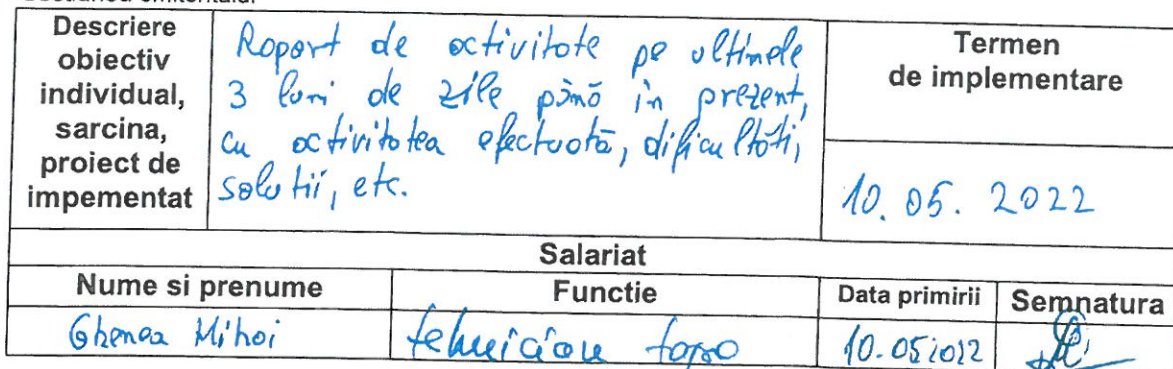 Descriere
obiectiv
individual,
sarcina,
proiect de
impementat
Raport de activitate pe ultimele
3 luni de zile până în prezent,
cu activitatea efectuată, dificultăți,
soluții, etc.
Termen
de implementare
10.05.2022
Salariat
Nume si prenume
Functie
Data primirii
Semnatura
Ghenea Mihai
tehnician topo
10.05.2022